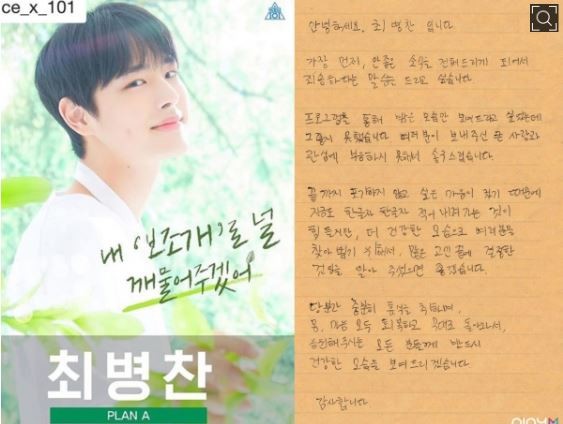 ce_x_101
101
내 '보조개'로 널
깨물어주겠어
최병찬
PLAN A
안녕하세요, 최병찬 입니다.
가장 먼저, 안좋은 소식을 전해드리게 되어서
죄송하다는 말씀을 드리고 싶습니다.
프로그램을 통해 밝은 모습만 보여드리고 싶었는데
그렇지 못했습니다 여러분이 보내주신 큰 사랑과
관심에 부응하지 못해서 송구스럽습니다.
끝까지 포기하지 않고 싶은 마음이 컸기 때문에
지금도 한글자 한글자 적어 내려가는 것이
힘들지만, 더 건강한 모습으로 여러분을
찾아 뵙기 위해서, 많은 고민 끝에 결정한
것임을 알아 주셨으면 좋겠습니다.
당분간 충분히 휴식을 취하며,
몸, 마음 모두 회복하고 무대로 돌아와서,
응원해주시는 모든 분들께 반드시
건강한 모습을 보여드리겠습니다.
감사합니다
playM